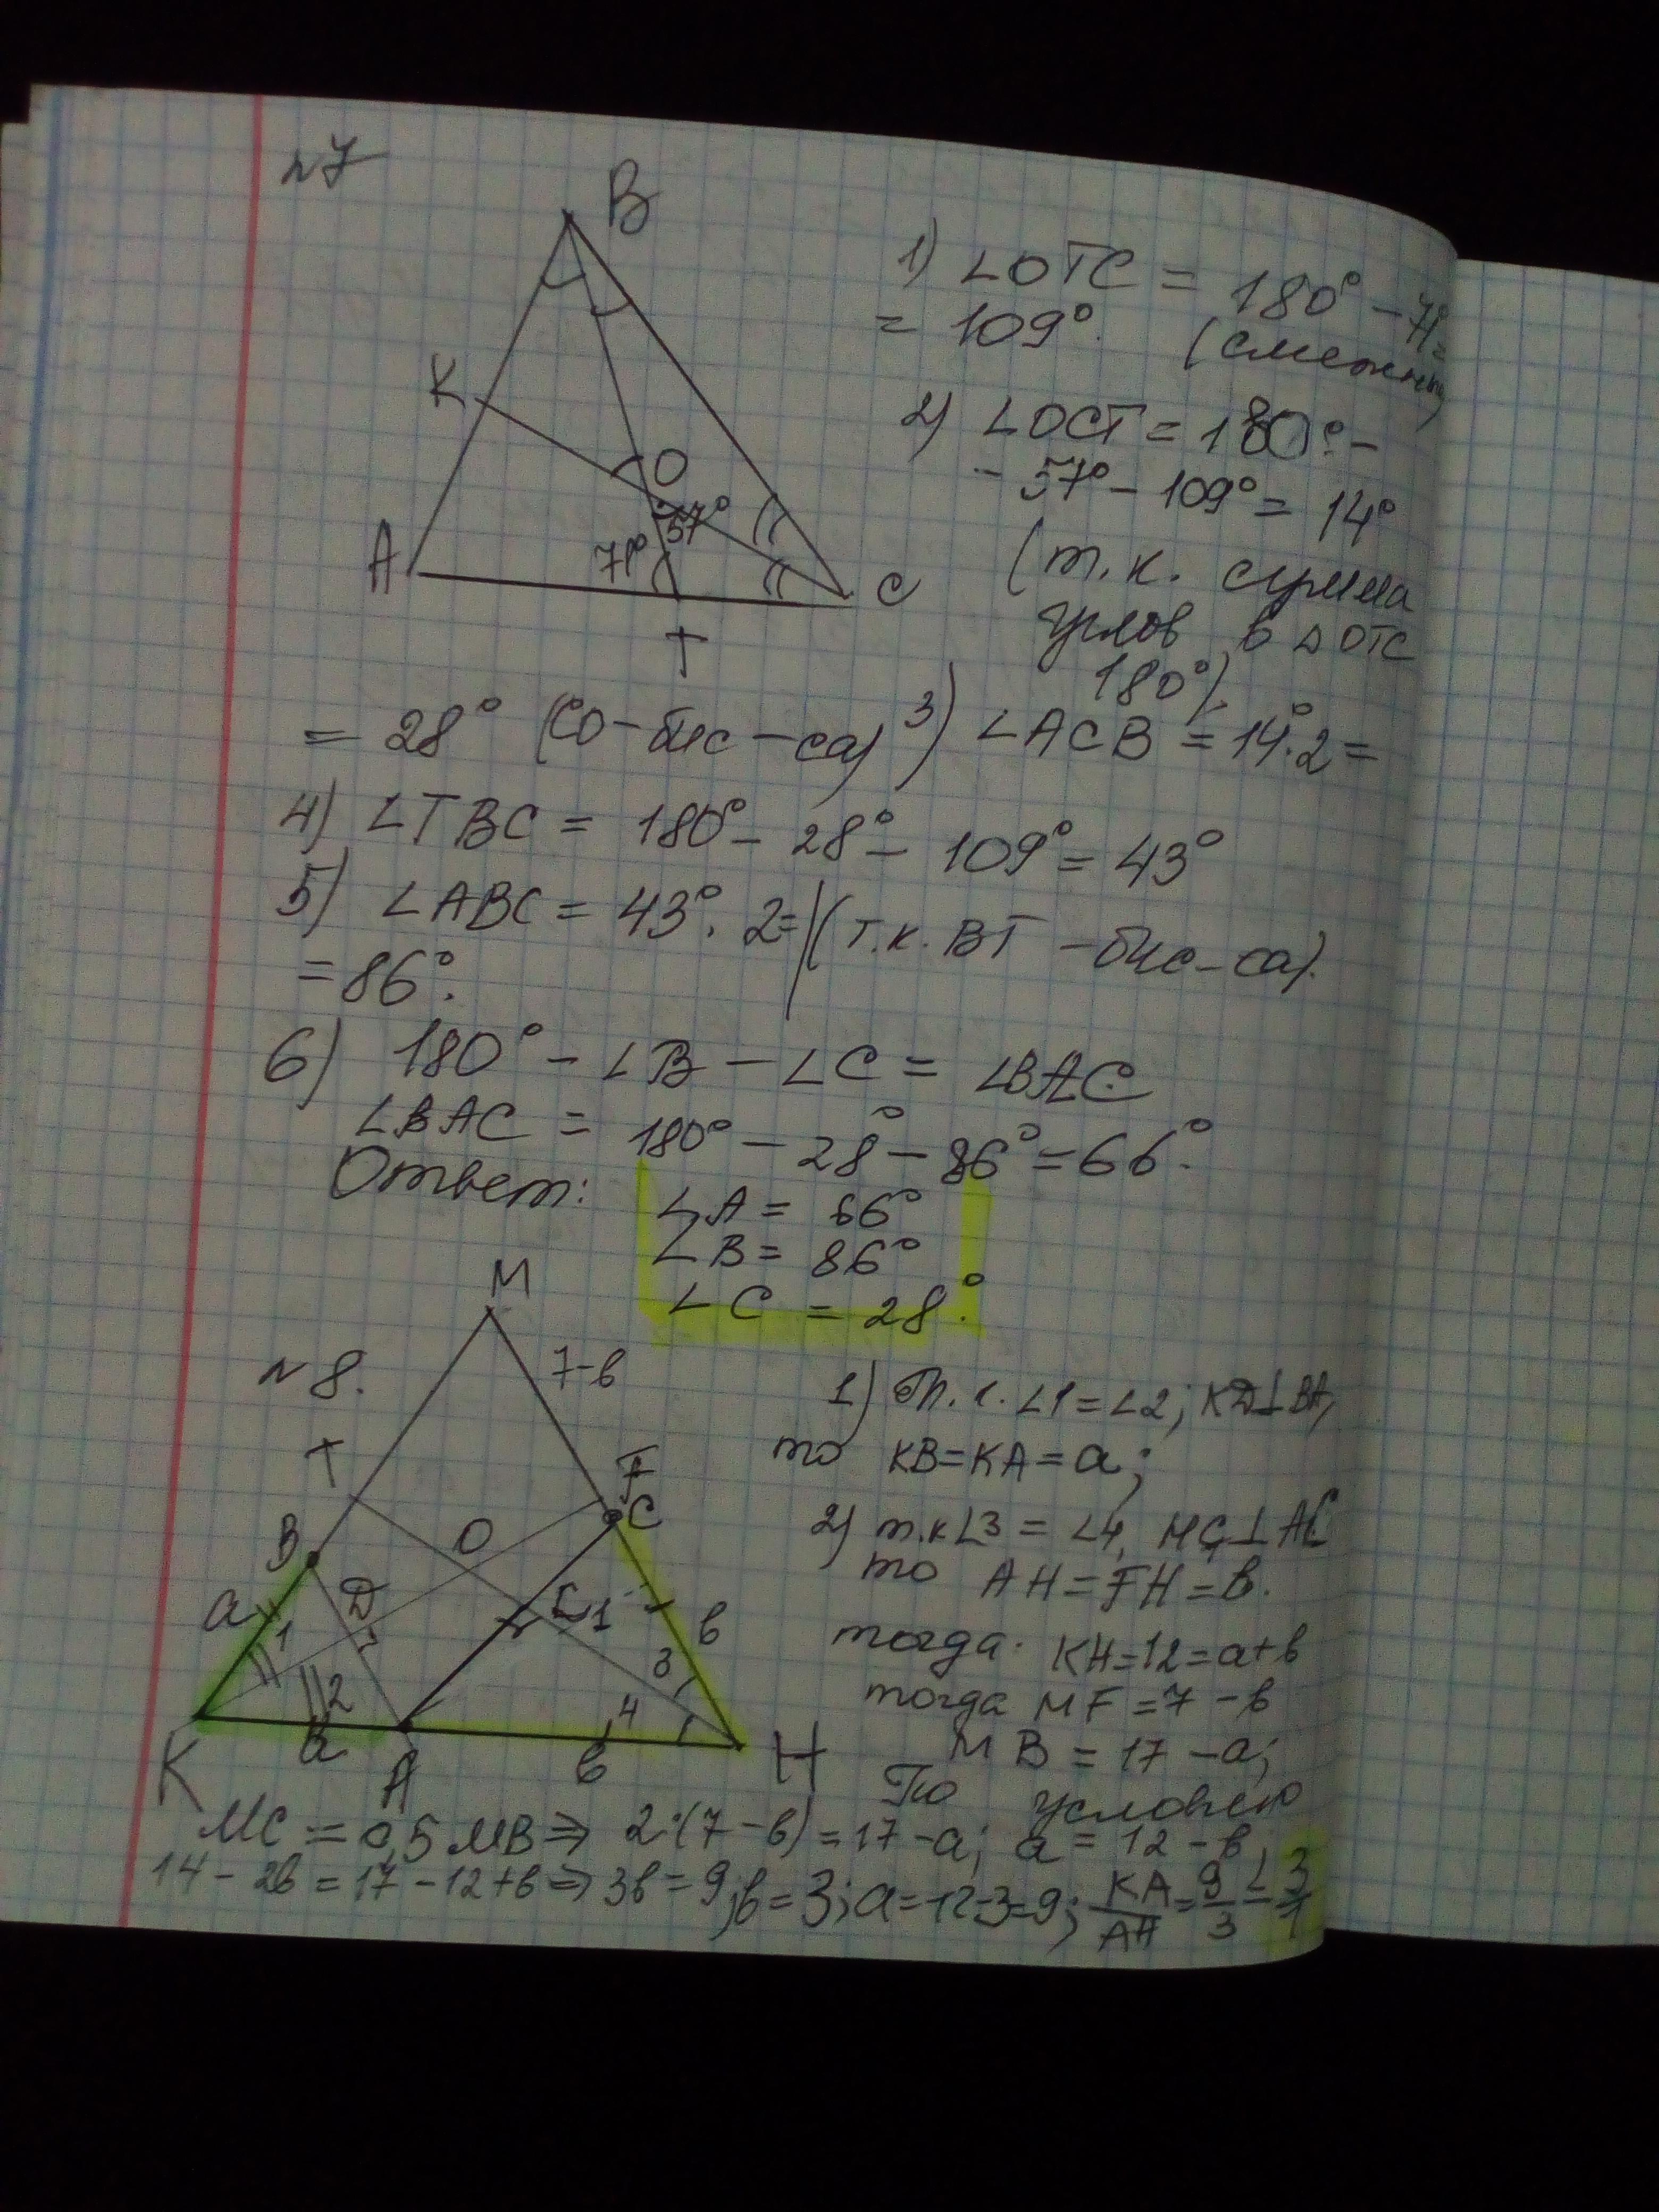 №7
B
K
O
57°
71°
A
C
T
1) ∠OTC = 180° - 71° =
= 109°. (смежные)
2) ∠OCT = 180° -
- 57° - 109° = 14°
(т.к. сумма
углов в △OTC
180°).
3) ∠ACB = 14°·2 =
= 28° (CO-бис-са)
4) ∠TBC = 180° - 28° - 109° = 43°
5) ∠ABC = 43°·2= (т.к. BT-бис-са).
= 86°.
6) 180° - ∠B - ∠C = ∠BAC
∠BAC = 180° - 28° - 86° = 66°.
Ответ:
∠A = 66°
∠B = 86°
∠C = 28°.
№8.
M
7-в
T
F
C
B
O
D
a
1
в
3
2
4
a
в
K
A
H
1) Т.к. ∠1=∠2; KD⊥BA,
то KB=KA=a;
2) т.к ∠3 = ∠4,
то AH=FH=в.
тогда KH=12=a+в
тогда MF=7-в
MB = 17-a;
По условию
MC = 0,5MB ⇒ 2·(7-в)=17-a; a = 12-в
14-2в=17-12+в ⇒ 3в=9; в=3; a=12-3=9; KA/AH = 9/3 = 3/1